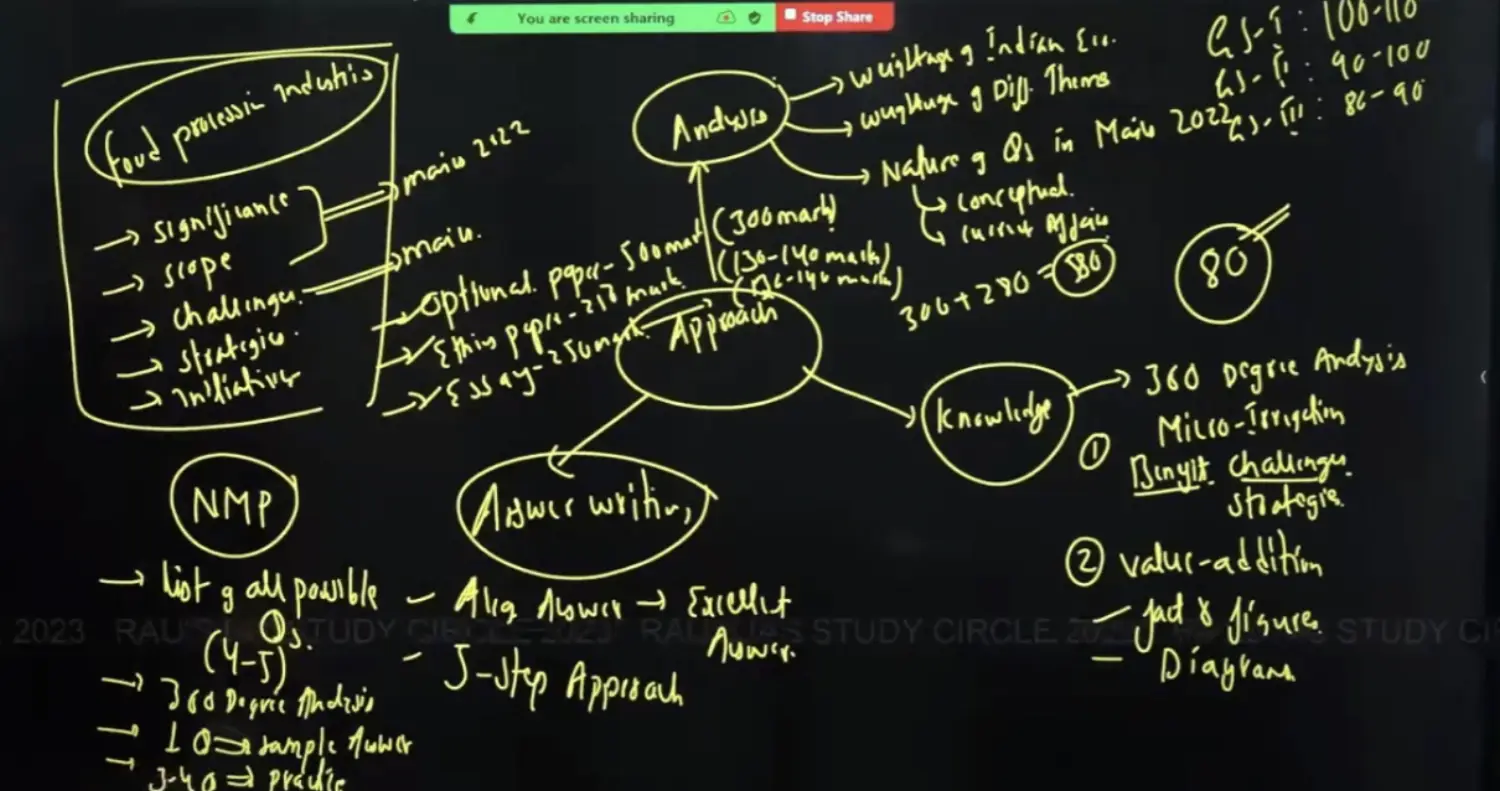 You are screen sharing
Stop Share
food processin industris
→ significance
→ scope
→ challenges
→ strategies
→ initiatives
mains 2022
mains.
Analysis
→ weightage of Indian Eco.
→ weightage of Diff. Thems
→ Nature of Qs in Mains 2022
→ conceptual.
→ current Affairs
GS-I : 100-110
GS-II : 90-100
GS-III : 80-90
optional paper - 500 mark (300 mark)
Ethics paper - 250 mark (130-140 mark)
Essay - 250 mark
300 + 280 = 580
80
Approach
Knowledge
→ 360 Degree Analysis
① Micro-Irrigation
Benefit challenges
strategies
② value-addition
- fact & figures
- Diagrams
Answer writing
- Avg Answer → Excellent
Answer.
- 5-step Approach
NMP
→ list of all possible
Qs.
(4-5)
→ 360 Degree Analysis
→ 1 Q ⇒ sample Answer
→ 3-4 Q ⇒ practice
2023 RAU'S STUDY CIRCLE 2023 RAU'S STUDY CIRCLE 2023 STUDY CI